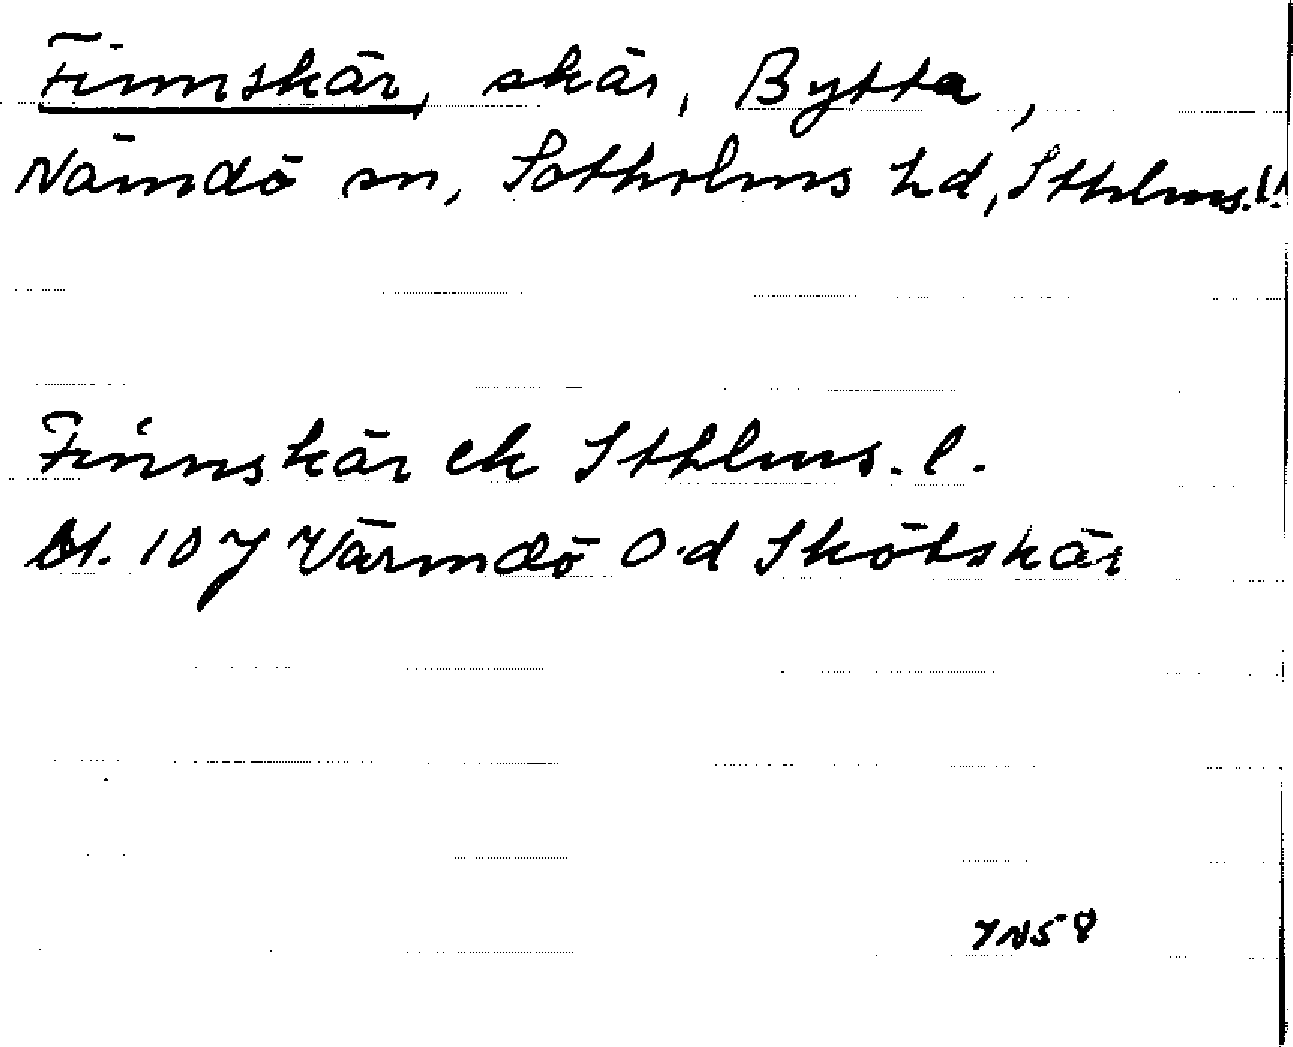 Finnskär, skär, Bytta,
Nämdö sn, Sotholms hd, Sthlms.l.
Finnskär ek Sthlms. l.
Bl. 107 Värmdö O.d Skötskär
7NS8